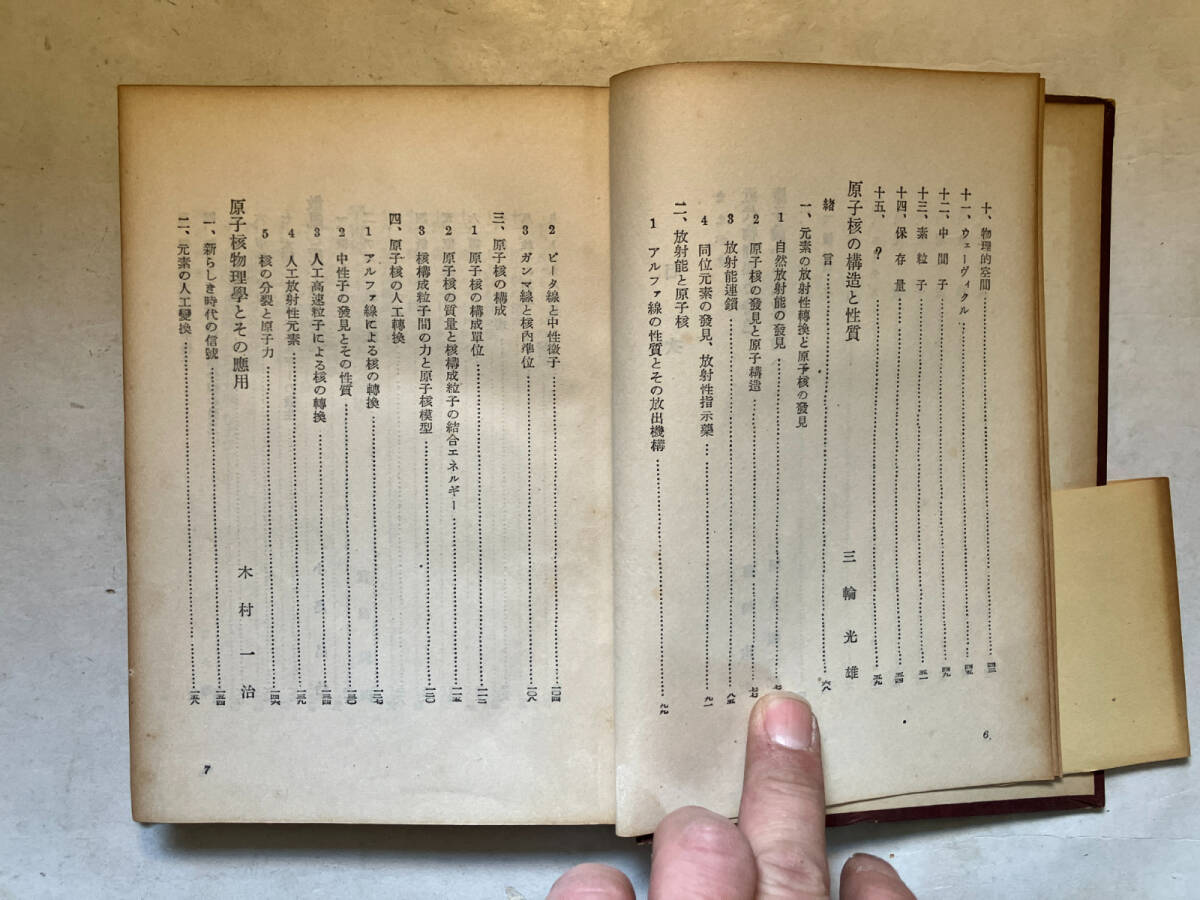 十、物理的空間……四三
十一、ウェーヴィクル……四五
十二、中間子……四九
十三、素粒子……五一
十四、保存量……五四
十五、?……五九
原子核の構造と性質 三輪光雄
緒言……六八
一、元素の放射性轉換と原子核の發見
1 自然放射能の發見……
2 原子核の發見と原子構造……
3 放射能連鎖……八五
4 同位元素の發見、放射性指示藥……九一
二、放射能と原子核
1 アルファ線の性質とその放出機構……九九
6
2 ビータ線と中性微子……一〇四
3 ガンマ線と核內準位……一〇八
三、原子核の構成
1 原子核の構成單位……一一二
2 原子核の質量と核構成粒子の結合エネルギー……一一五
3 核構成粒子間の力と原子核模型……一二〇
四、原子核の人工轉換
1 アルファ線による核の轉換……一二七
2 中性子の發見とその性質……一三〇
3 人工高速粒子による核の轉換……一三四
4 人工放射性元素……一三九
5 核の分裂と原子力……一四六
原子核物理學とその應用 木村一治
一、新らしき時代の信號……一五四
二、元素の人工變換……一五八
7